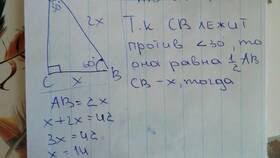 30°
2x
60°
C
x
B
AB=2x
x+2x=42
3x=42
x=14
Т.к СВ лежит
против <30, то
она равна 1/2 АВ
СВ-х, тогда